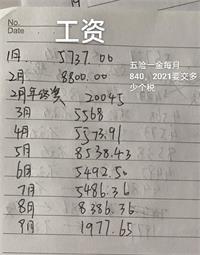 No.
Date
工资
1月 5737.00
五险一金每月
840，2021要交多
少个税
2月 8800.00
2月年终奖 20045
3月 5568
4月 5573.91
5月 8538.43
6月 5492.50
7月 5486.36
8月 8386.36
9月 1977.65